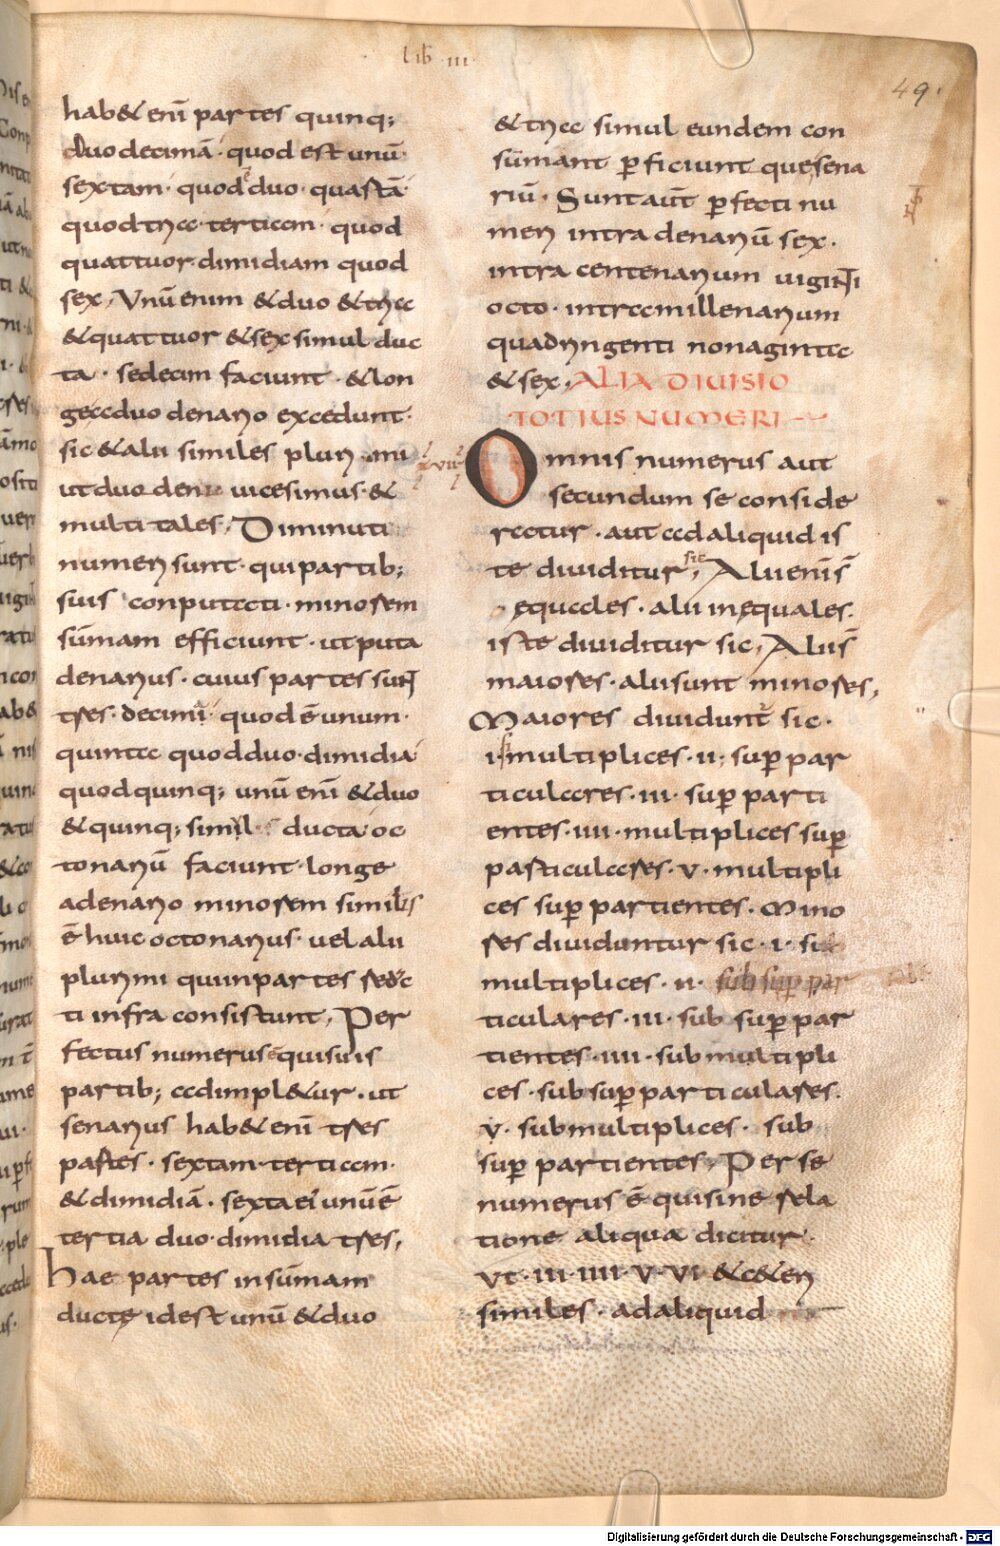 lib · iii ·
49 ·
hab& enī partes quinq;
duodecimā · quod est unū ·
sextam · quod duo · quartā ·
quod tria · tertiam · quod
quattuor · dimidiam quod
sex, Unū enim & duo & tria
& quattuor & sex simul duc
ta · sedecim faciunt · & lon
ga a duodenario excedunt ·
sic & alii similes pluri mi
ut duodeni uicesimus · &
multi tales, Diminuti
numeri sunt · qui partib;
suis conputati · minorem
sūmam efficiunt · ut puta
denarius · cuius partes sunt
tres · decima quod ē unum ·
quinta quod duo · dimidia
quod quinq; unū enī & duo
& quinq; simul ducta oc
tonariū faciunt · longe
a denario minorem similis
ē huic octonarius · uel alii
plurimi qui in partes redac
ti infra consistunt, Per
fectus numerus ē qui suis
partib; adimpl&ur · ut
senarius hab& enī tres
partes · sextam · tertiam ·
& dimidiā · sexta ei unū ē
tertia duo · dimidia tres,
Hae partes in sūmam
ductę id est unū & duo
& tria simul eundem con
sūmant perficiunt que sena
riū · Sunt aūt perfecti nu
meri intra denariū sex ·
intra centenarium uiginti
octo · intra millenarium
quadringenti nonaginta
& sex, ALIA DIUISIO
TOTIUS NUMERI
Omnis numerus aut
secundum se conside
ratur · aut ad aliquid is
te diuiditur sic, Alii enī s̄
ęquales · alii inęquales ·
iste diuiditur sic, Alii s̄
maiores · alii sunt minores,
Maiores diuidunt sic ·
i multiplices · ii · superpar
ticulares · iii · superparti
entes · iiii · multiplices super
particulares · v · multipli
ces superpartientes · Mino
res diuiduntur sic · i · sub
multiplices · ii · sub superpar
ticulares · iii · sub superpar
tientes · iiii · submultipli
ces · sub superparticulares ·
v · submultiplices · sub
superpartientes, Per se
numerus ē qui sine rela
tione aliqua dicitur ·
Ut · iii · iiii · v · vi · & c&eri
similes · ad aliquid
Digitalisierung gefördert durch die Deutsche Forschungsgemeinschaft - DFG